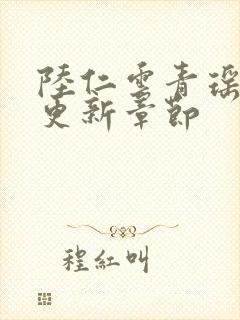 陸仁雲青瑶
更新章節
程紅叫